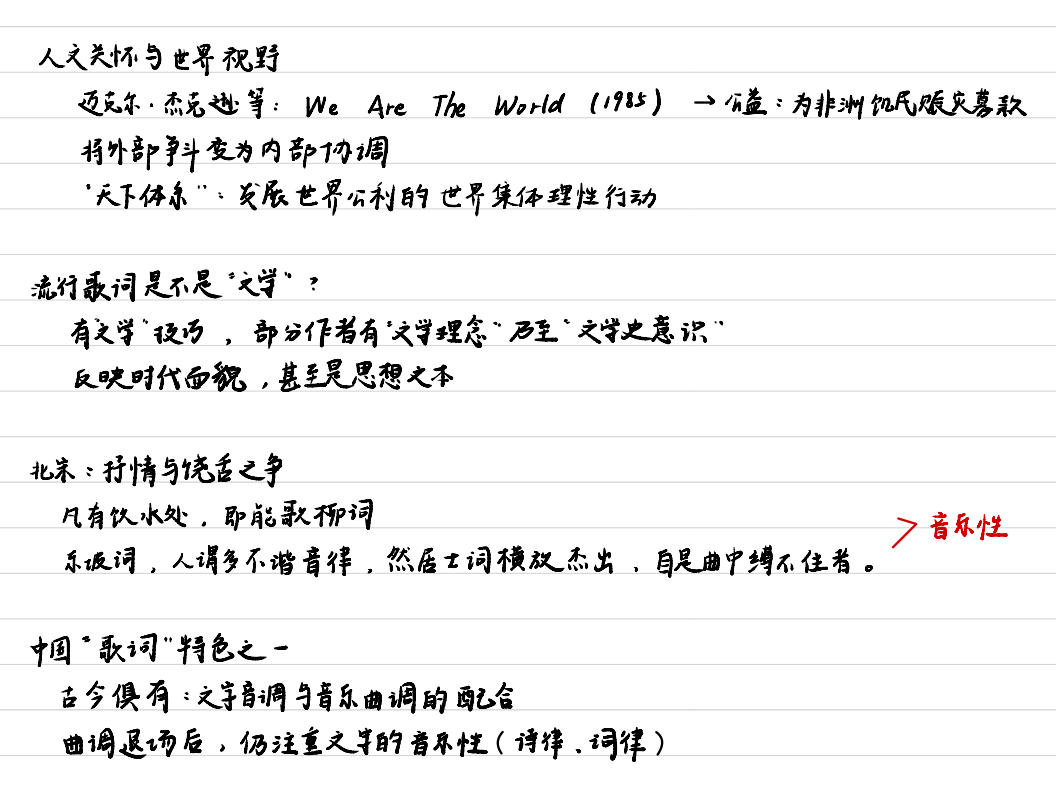 人文关怀与世界视野
迈克尔·杰克逊等: We Are The World (1985) → 公益:为非洲饥民赈灾募款
将外部争斗变为内部协调
"天下体系":发展世界公利的世界集体理性行动
流行歌词是不是"文学"?
有"文学"技巧,部分作者有"文学理念"乃至"文学史意识"
反映时代面貌,甚至是思想之本
北宋:抒情与饶舌之争
凡有饮水处,即能歌柳词
> 音乐性
东坡词,人谓多不谐音律,然居士词横放杰出、自是曲中缚不住者。
中国"歌词"特色之一
古今俱有:文字音调与音乐曲调的配合
曲调退场后,仍注重文字的音乐性(诗律、词律)